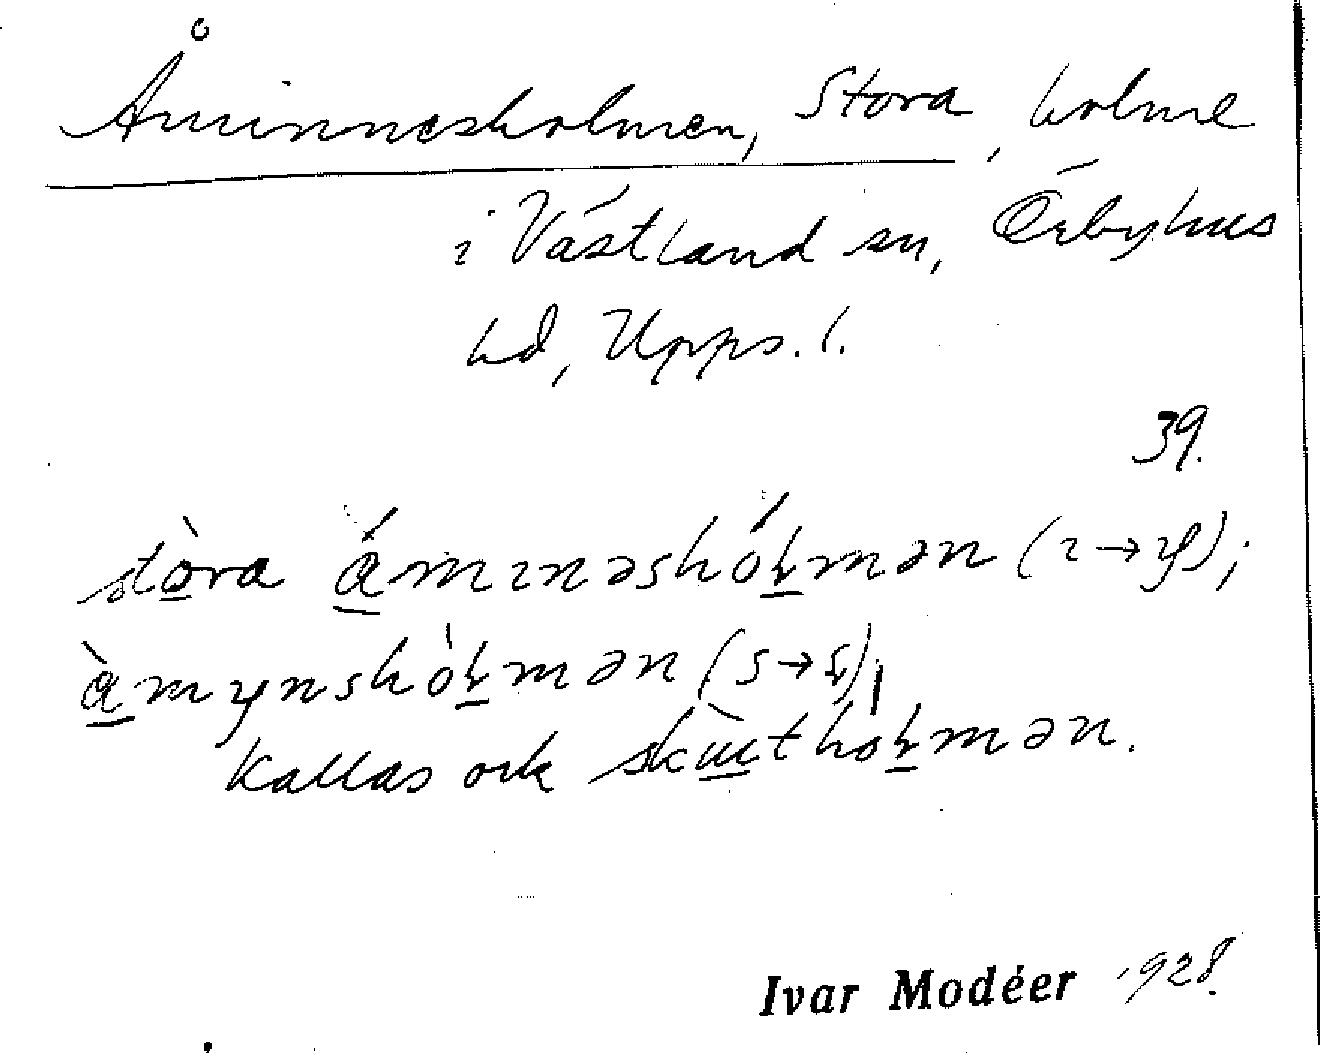 Åminnesholmen, Stora, holme
i Västland sn, Örbyhus
hd, Upps. l.
39.
stòra ámınəshóɽmən (ı→y);
àmynshòɽmən (s→ʂ),
Kallas ock skùthoɽmən.
Ivar Modéer 1928.